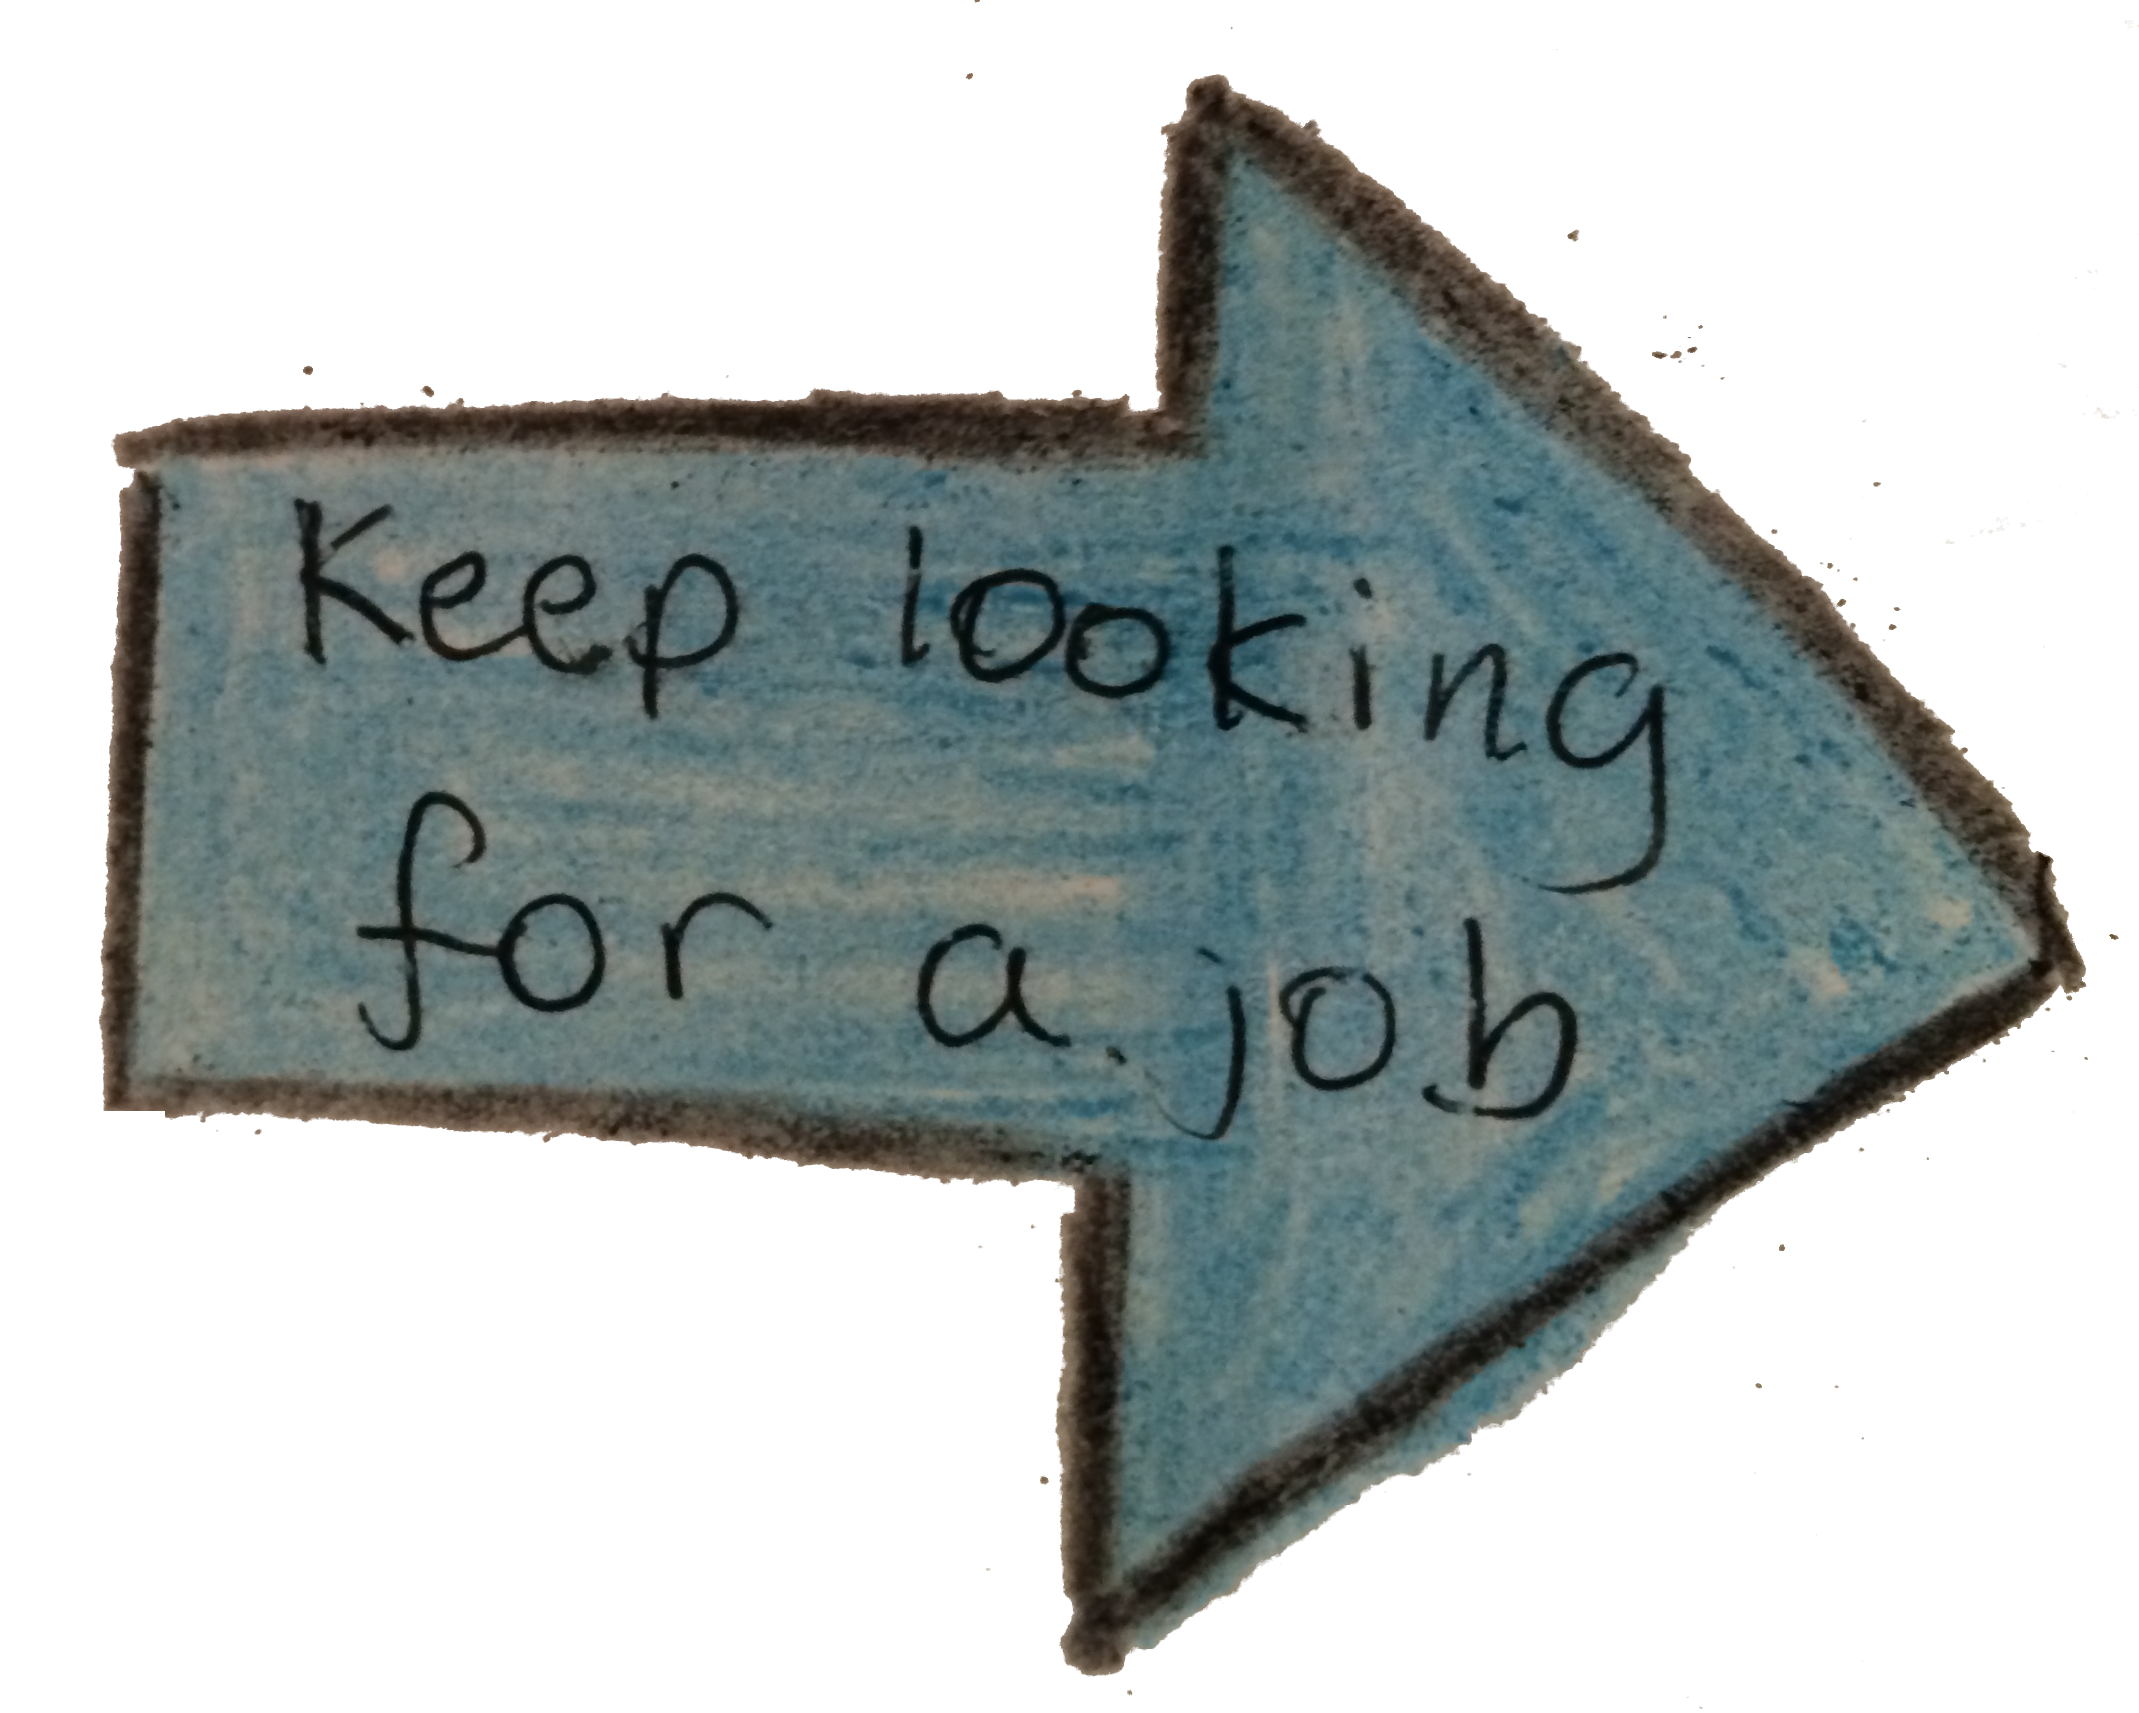 Keep looking
for a job